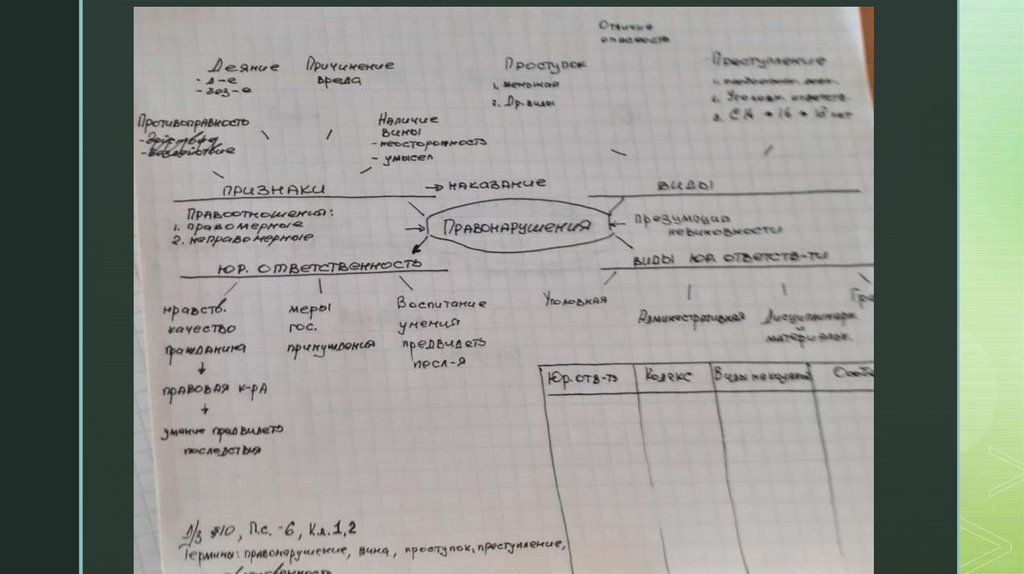 Отличие
опасность
Деяние
- д-е
- без-е
Причинение
вреда
Проступок
1. меньшая
2. Др. виды
Преступление
2. Уголовн. ответств.
Противоправность
- действия
- бездействие
Наличие
вины
- неосторожность
- умысел
ПРИЗНАКИ
→ наказание
виды
Правоотношения:
1. правомерные
2. неправомерные
Правонарушения
презумпция
невиновности
ЮР. ОТВЕТСТВЕННОСТЬ
виды юр. ответств-ти
нравств.
качество
гражданина
правовая к-ра
умение предвидеть
последствия
меры
гос.
принуждения
Воспитание
умения
предвидеть
посл-я
Уголовная
Административная
Дисциплинарн.
и
материальн.
Гра
Юр. отв-ть
Кодекс
Виды наказаний
Особ
Д/з §10, П.с. -6, Кл.1,2
Термины: правонарушение, вина, проступок, преступление,